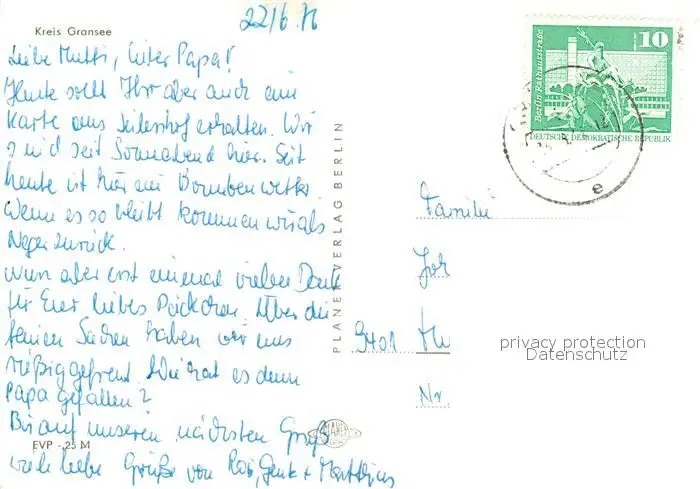 Kreis Gransee
22/6.76
Liebe Mutti, lieber Papa!
Heute sollt Ihr aber auch eine
Karte aus Seilershof erhalten. Wir
sind seit Sonnabend hier. Seit
heute ist hier ein Bombenwetter.
Wenn es so bleibt kommen wir als
Neger zurück.
Nun aber erst einmal vielen Dank
für Euer liebes Päckchen. Über die
feinen Sachen haben wir uns
rießig gefreut. Wie hat es denn
Papa gefallen?
Bis auf unseren nächsten Gruß
viele liebe Grüße von
+ Matthias
EVP -,25 M
PLANET-VERLAG BERLIN
PLANET
Berlin Rathausstraße
10
DEUTSCHE DEMOKRATISCHE REPUBLIK
e
Familie
9401
Nr.
privacy protection
Datenschutz